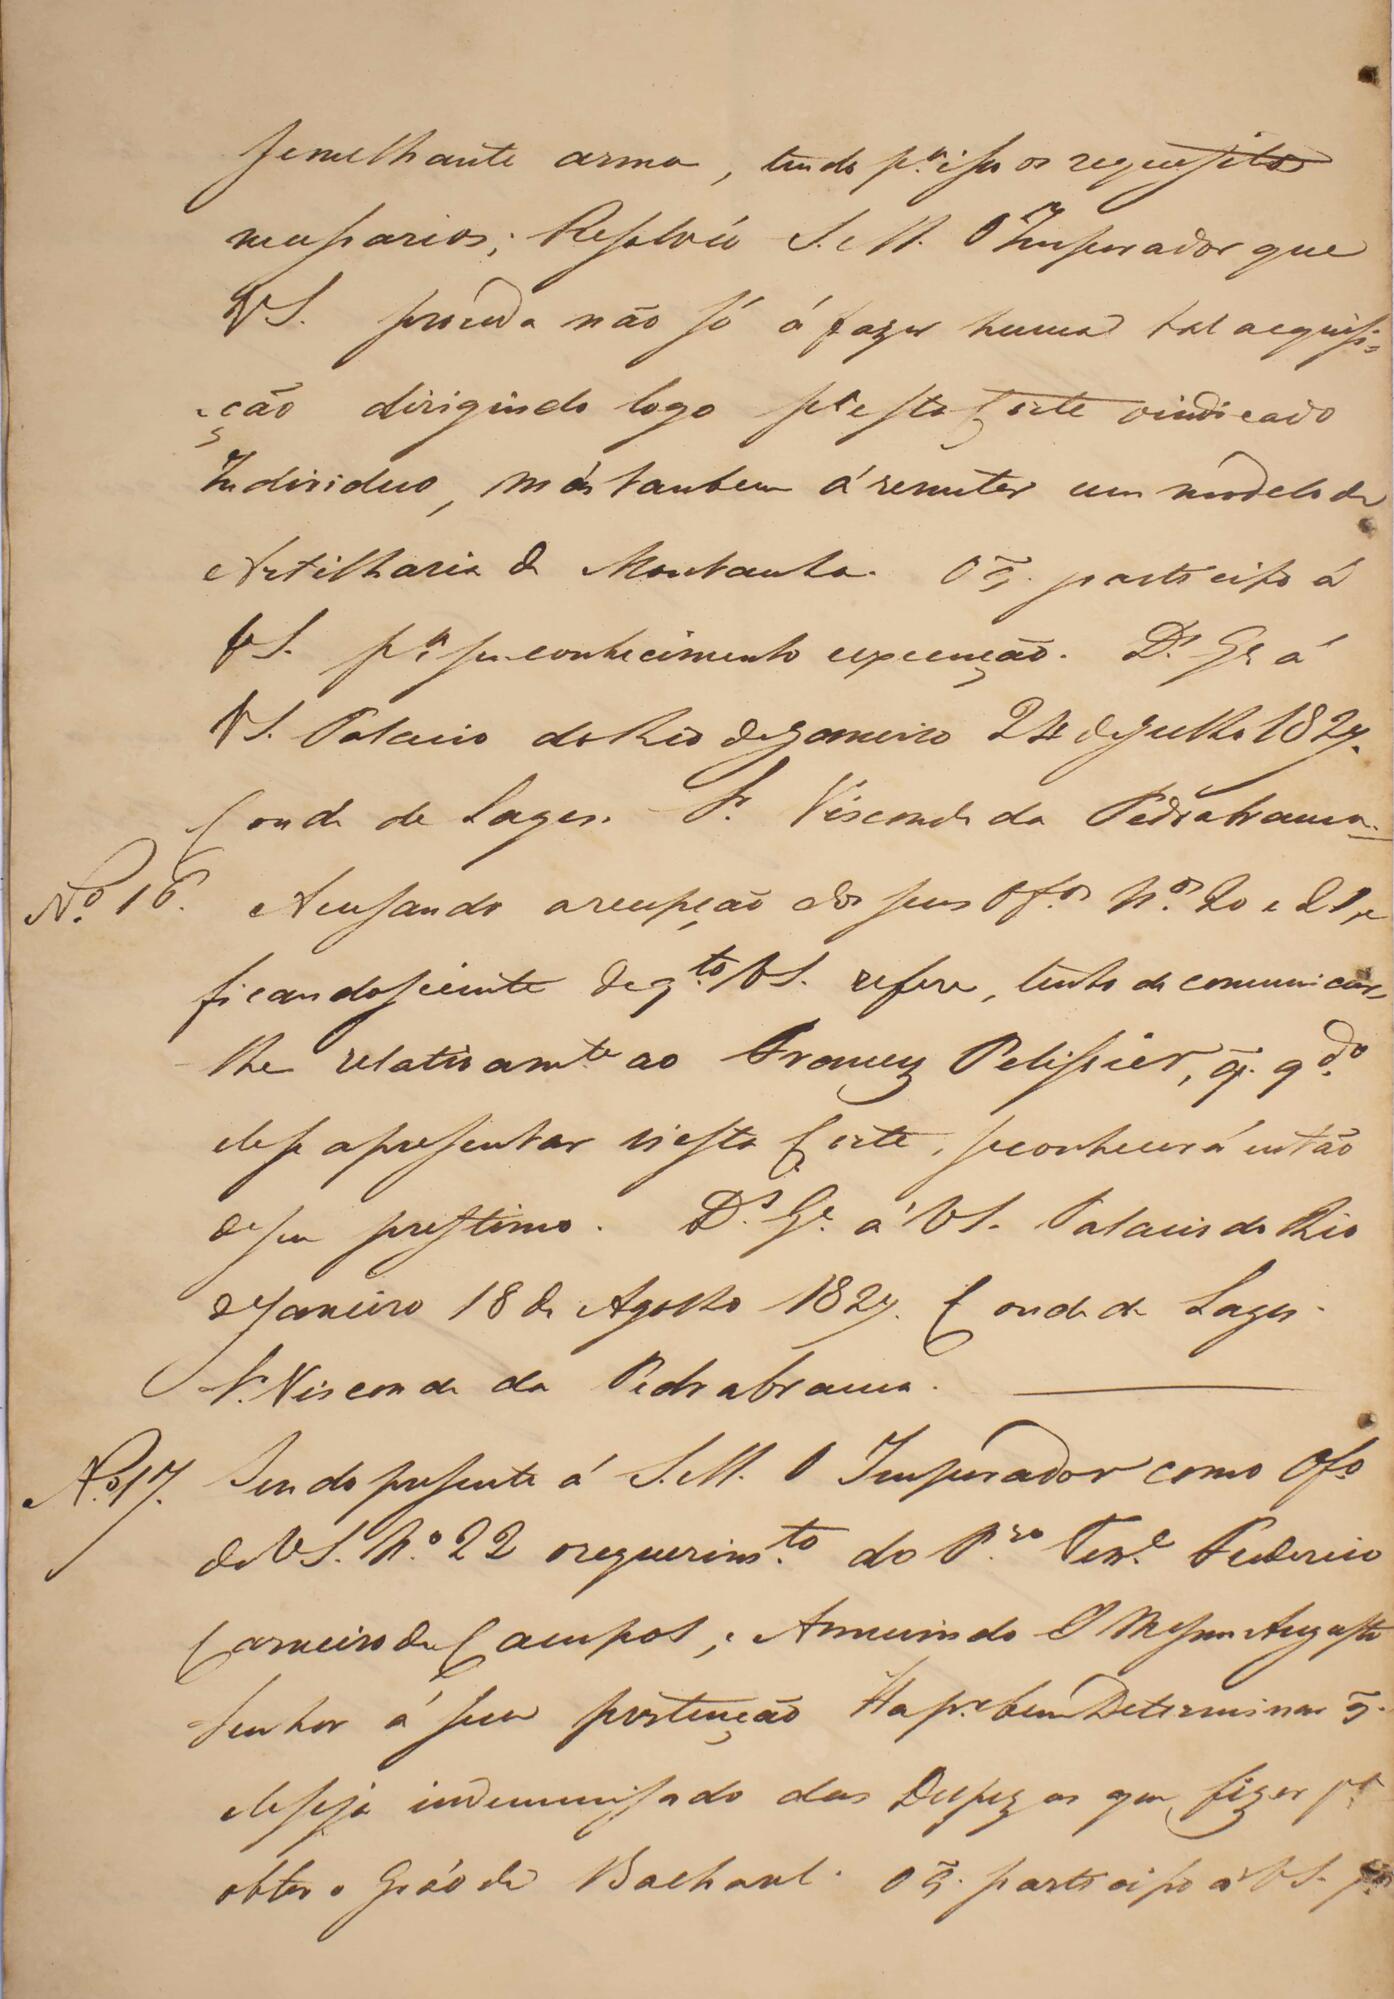 semelhante arma, tendo p.ª isso os requesitos
necessarios; Resolvêo S. M. O Imperador que
VS. proceda não só á fazer huma tal acquisi=
=ção dirigindo logo p.ª esta Corte o indicado
Individuo, más tambem á remeter um modelo de
Artilharia de Montanha. O q̃. participo á
VS. p.ª seu conhecimento e execução. D.s G.e á
VS. Palacio do Rio de Janeiro 24 de Julho 1827.
Conde de Lages. S.r Visconde da Pedrabranca.
N.º 16. Acusando a recepção dos seus Of.os N.os 20 e 21, e
ficando sciente de q.to VS. refere, tenho de comunicar=
lhe relativam.te ao Francez Pelissier, q̃. q.do
elle se apresentar n'esta Corte, se conhecerá então
de seu prestimo. D.s G.e á VS. Palacio do Rio
de Janeiro 18 de Agosto 1827. Conde de Lages.
S.r Visconde da Pedrabranca.
N.º 17. Sendo presente á S. M. O Imperador com o Of.o
de VS. N.º 22 o requerim.to do P.ro Ten.e Frederico
Carneiro de Campos; e Annuindo O Mesmo Augusto
Senhor á sua pertenção Ha p.r bem Determinar q̃.
elle seja indemnisado das Despezas que fizer p.ª
obter o Gráo de Bacharel. O q̃. participo a VS. p.ª